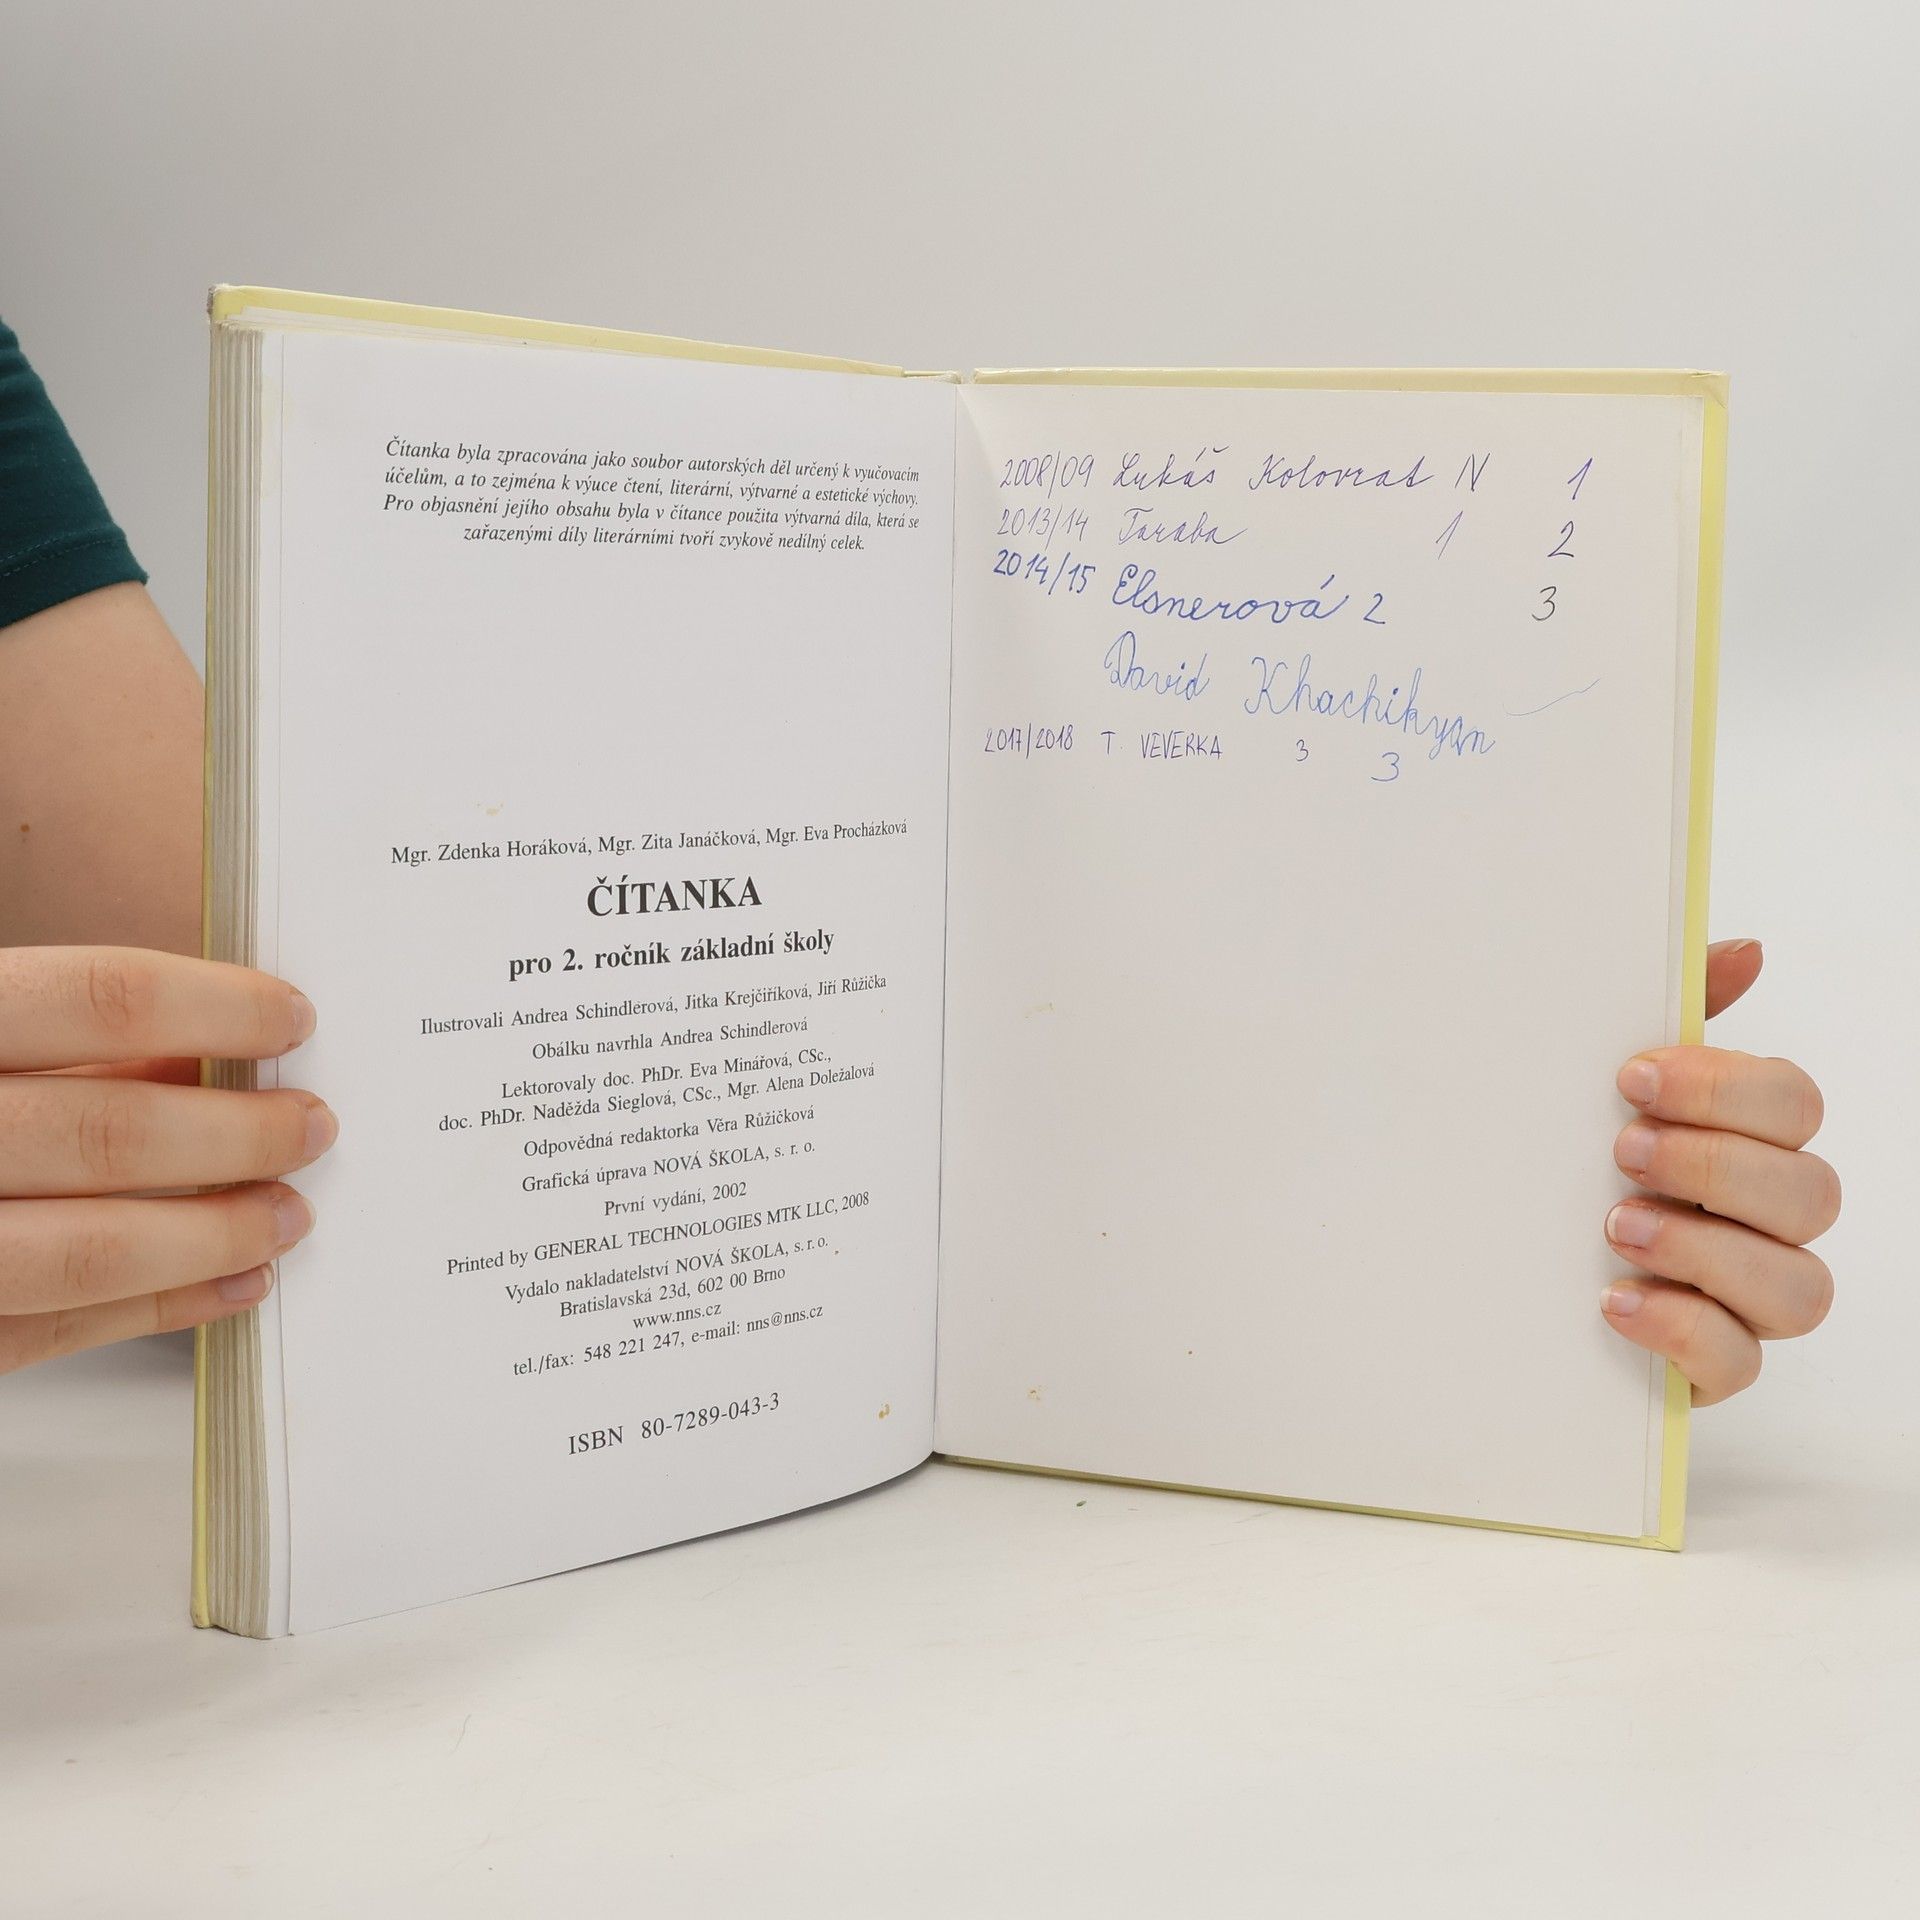 Čítanka byla zpracována jako soubor autorských děl určený k vyučovacím
účelům, a to zejména k výuce čtení, literární, výtvarné a estetické výchovy.
Pro objasnění jejího obsahu byla v čítance použita výtvarná díla, která se
zařazenými díly literárními tvoří zvykově nedílný celek.
Mgr. Zdenka Horáková, Mgr. Zita Janáčková, Mgr. Eva Procházková
ČÍTANKA
pro 2. ročník základní školy
Ilustrovali Andrea Schindlerová, Jitka Krejčiříková, Jiří Růžička
Obálku navrhla Andrea Schindlerová
Lektorovaly doc. PhDr. Eva Minářová, CSc.,
doc. PhDr. Naděžda Sieglová, CSc., Mgr. Alena Doležalová
Odpovědná redaktorka Věra Růžičková
Grafická úprava NOVÁ ŠKOLA, s. r. o.
První vydání, 2002
Printed by GENERAL TECHNOLOGIES MTK LLC, 2008
Vydalo nakladatelství NOVÁ ŠKOLA, s. r. o.
Bratislavská 23d, 602 00 Brno
www.nns.cz
tel./fax: 548 221 247, e-mail: nns@nns.cz
ISBN 80-7289-043-3
2008/09 Lukáš Kolovrat N 1
2013/14 Taraba 1 2
2014/15 Elsnerová 2 3
David Khachikyan
2017/2018 T. VEVERKA 3 3